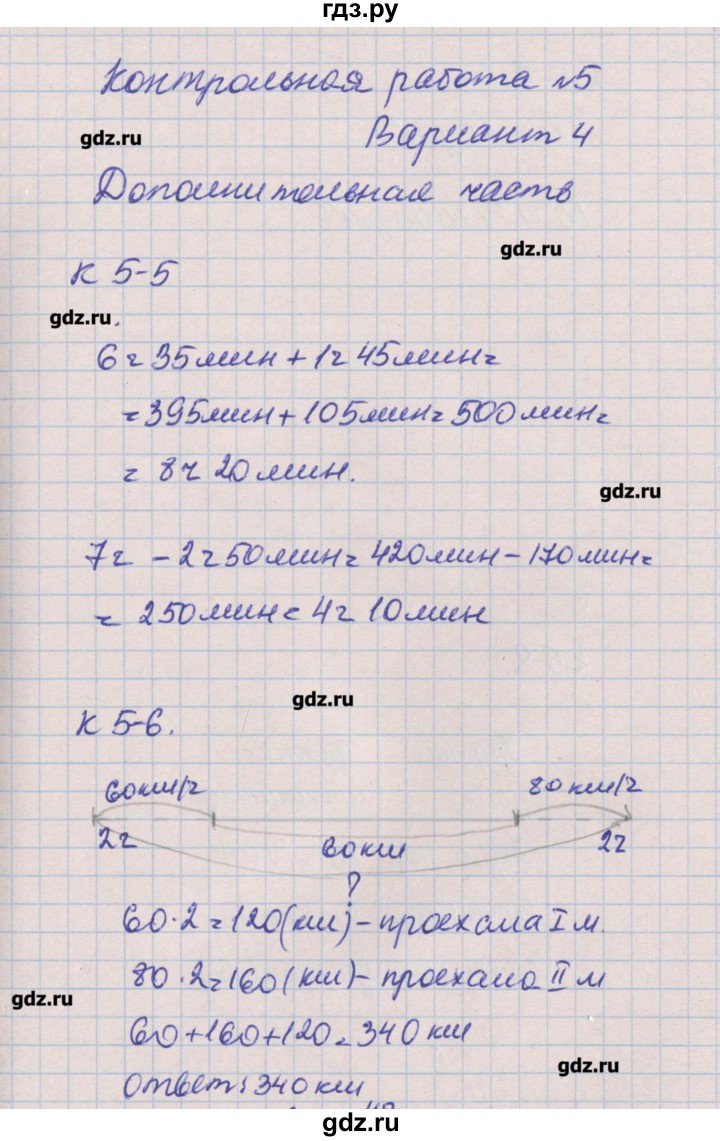 гдз.ру
Контрольная работа №5
gdz.ru
Вариант 4
Дополнительная часть
gdz.ru
К 5-5
gdz.ru.
6ч 35мин + 1ч 45мин =
= 395мин + 105мин = 500мин =
= 8ч 20мин.
gdz.ru
7ч - 2ч 50мин = 420мин - 170мин =
= 250мин = 4ч 10мин
gdz.ru
К 5-6.
60км/ч 80км/ч
2ч 60км 2ч
?
60·2=120(км) - проехала I м.
80·2=160(км) - проехала II м
gdz.ru
60+160+120=340км
gdz.ru
Ответ: 340км
gdz.ru